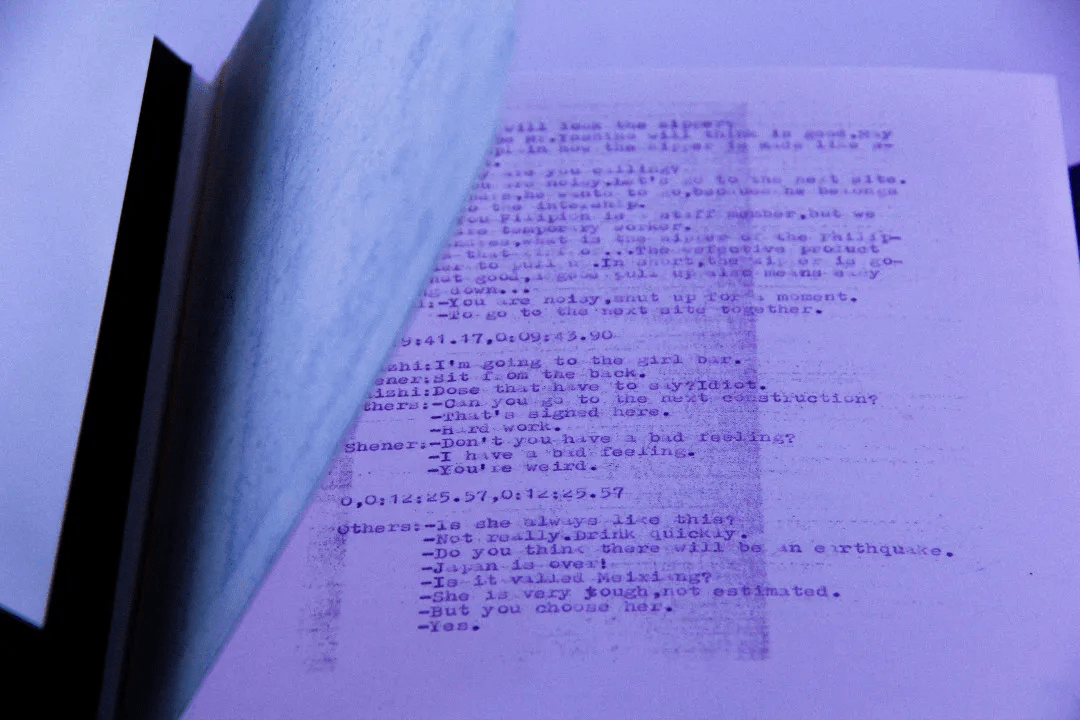 will look the zipper.
Mr.Yoshino will think is good.May
in how the zipper is made like a-
are you calling?
are noisy.Let's go to the next site.
he wants to go,because he belongs
the intership.
Filipion is a staff member,but we
temporary worker.
what is the zipper of the Philip-
that kind of...The defective product
to pull u .In short,the zipper is go-
not good,a good pull up also means easy
down...
:-You are noisy,shut up for a moment.
-To go to the next site together.
9:41.17,0:09:43.90
shi:I'm going to the girl bar.
ener:Sit from the back.
ishi:Dose that have to say?Idiot.
thers:-Can you go to the next construction?
-That's signed here.
-Hard work.
Shener:-Don't you have a bad feeling?
-I have a bad feeling.
-You're weird.
0,0:12:25.57,0:12:25.57
Others:-Is she always like this?
-Not really.Drink quickly.
-Do you think there will be an earthquake.
-Japan is over!
-Is it valled Meixiang?
-She is very tough,not estimated.
-But you choose her.
-Yes.